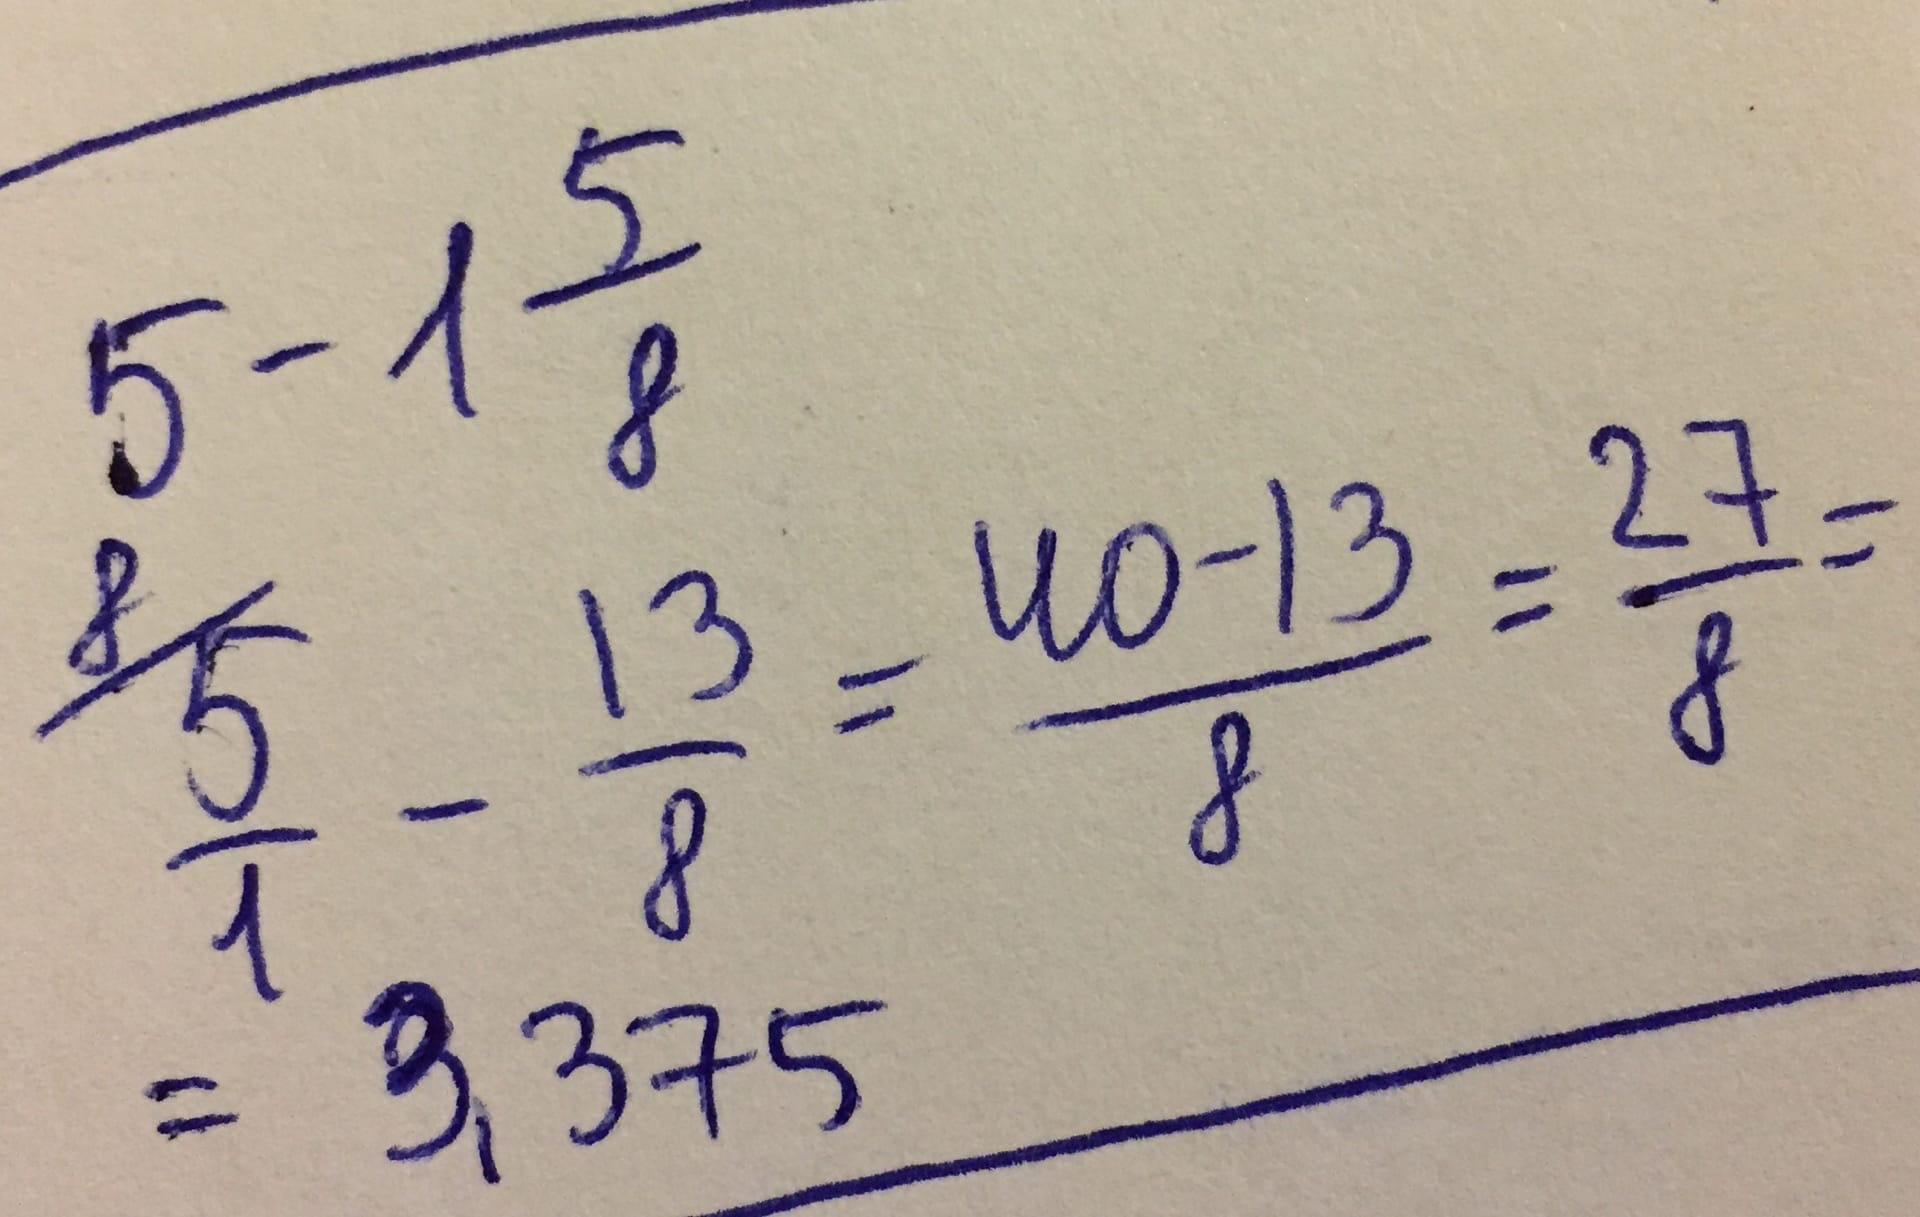 5 - 1 5/8
8/ 5/1 - 13/8 = 40-13/8 = 27/8 =
= 3,375